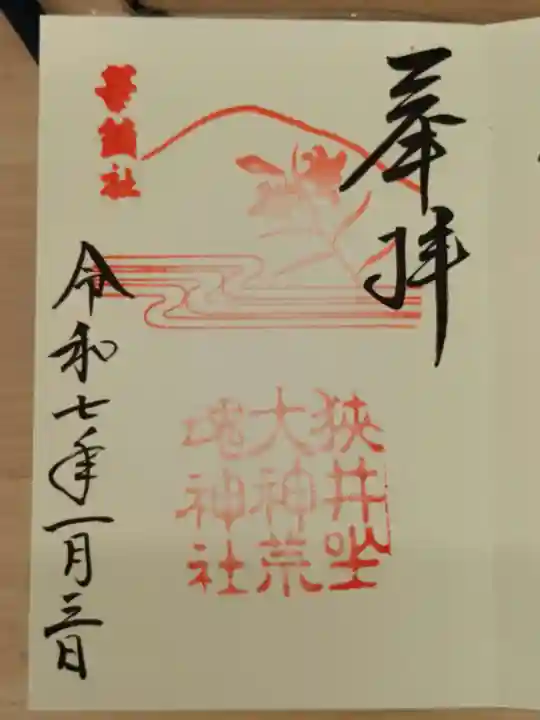 奉拝
狭井坐
大神荒
魂神社
華鎮社
令和七年一月三日